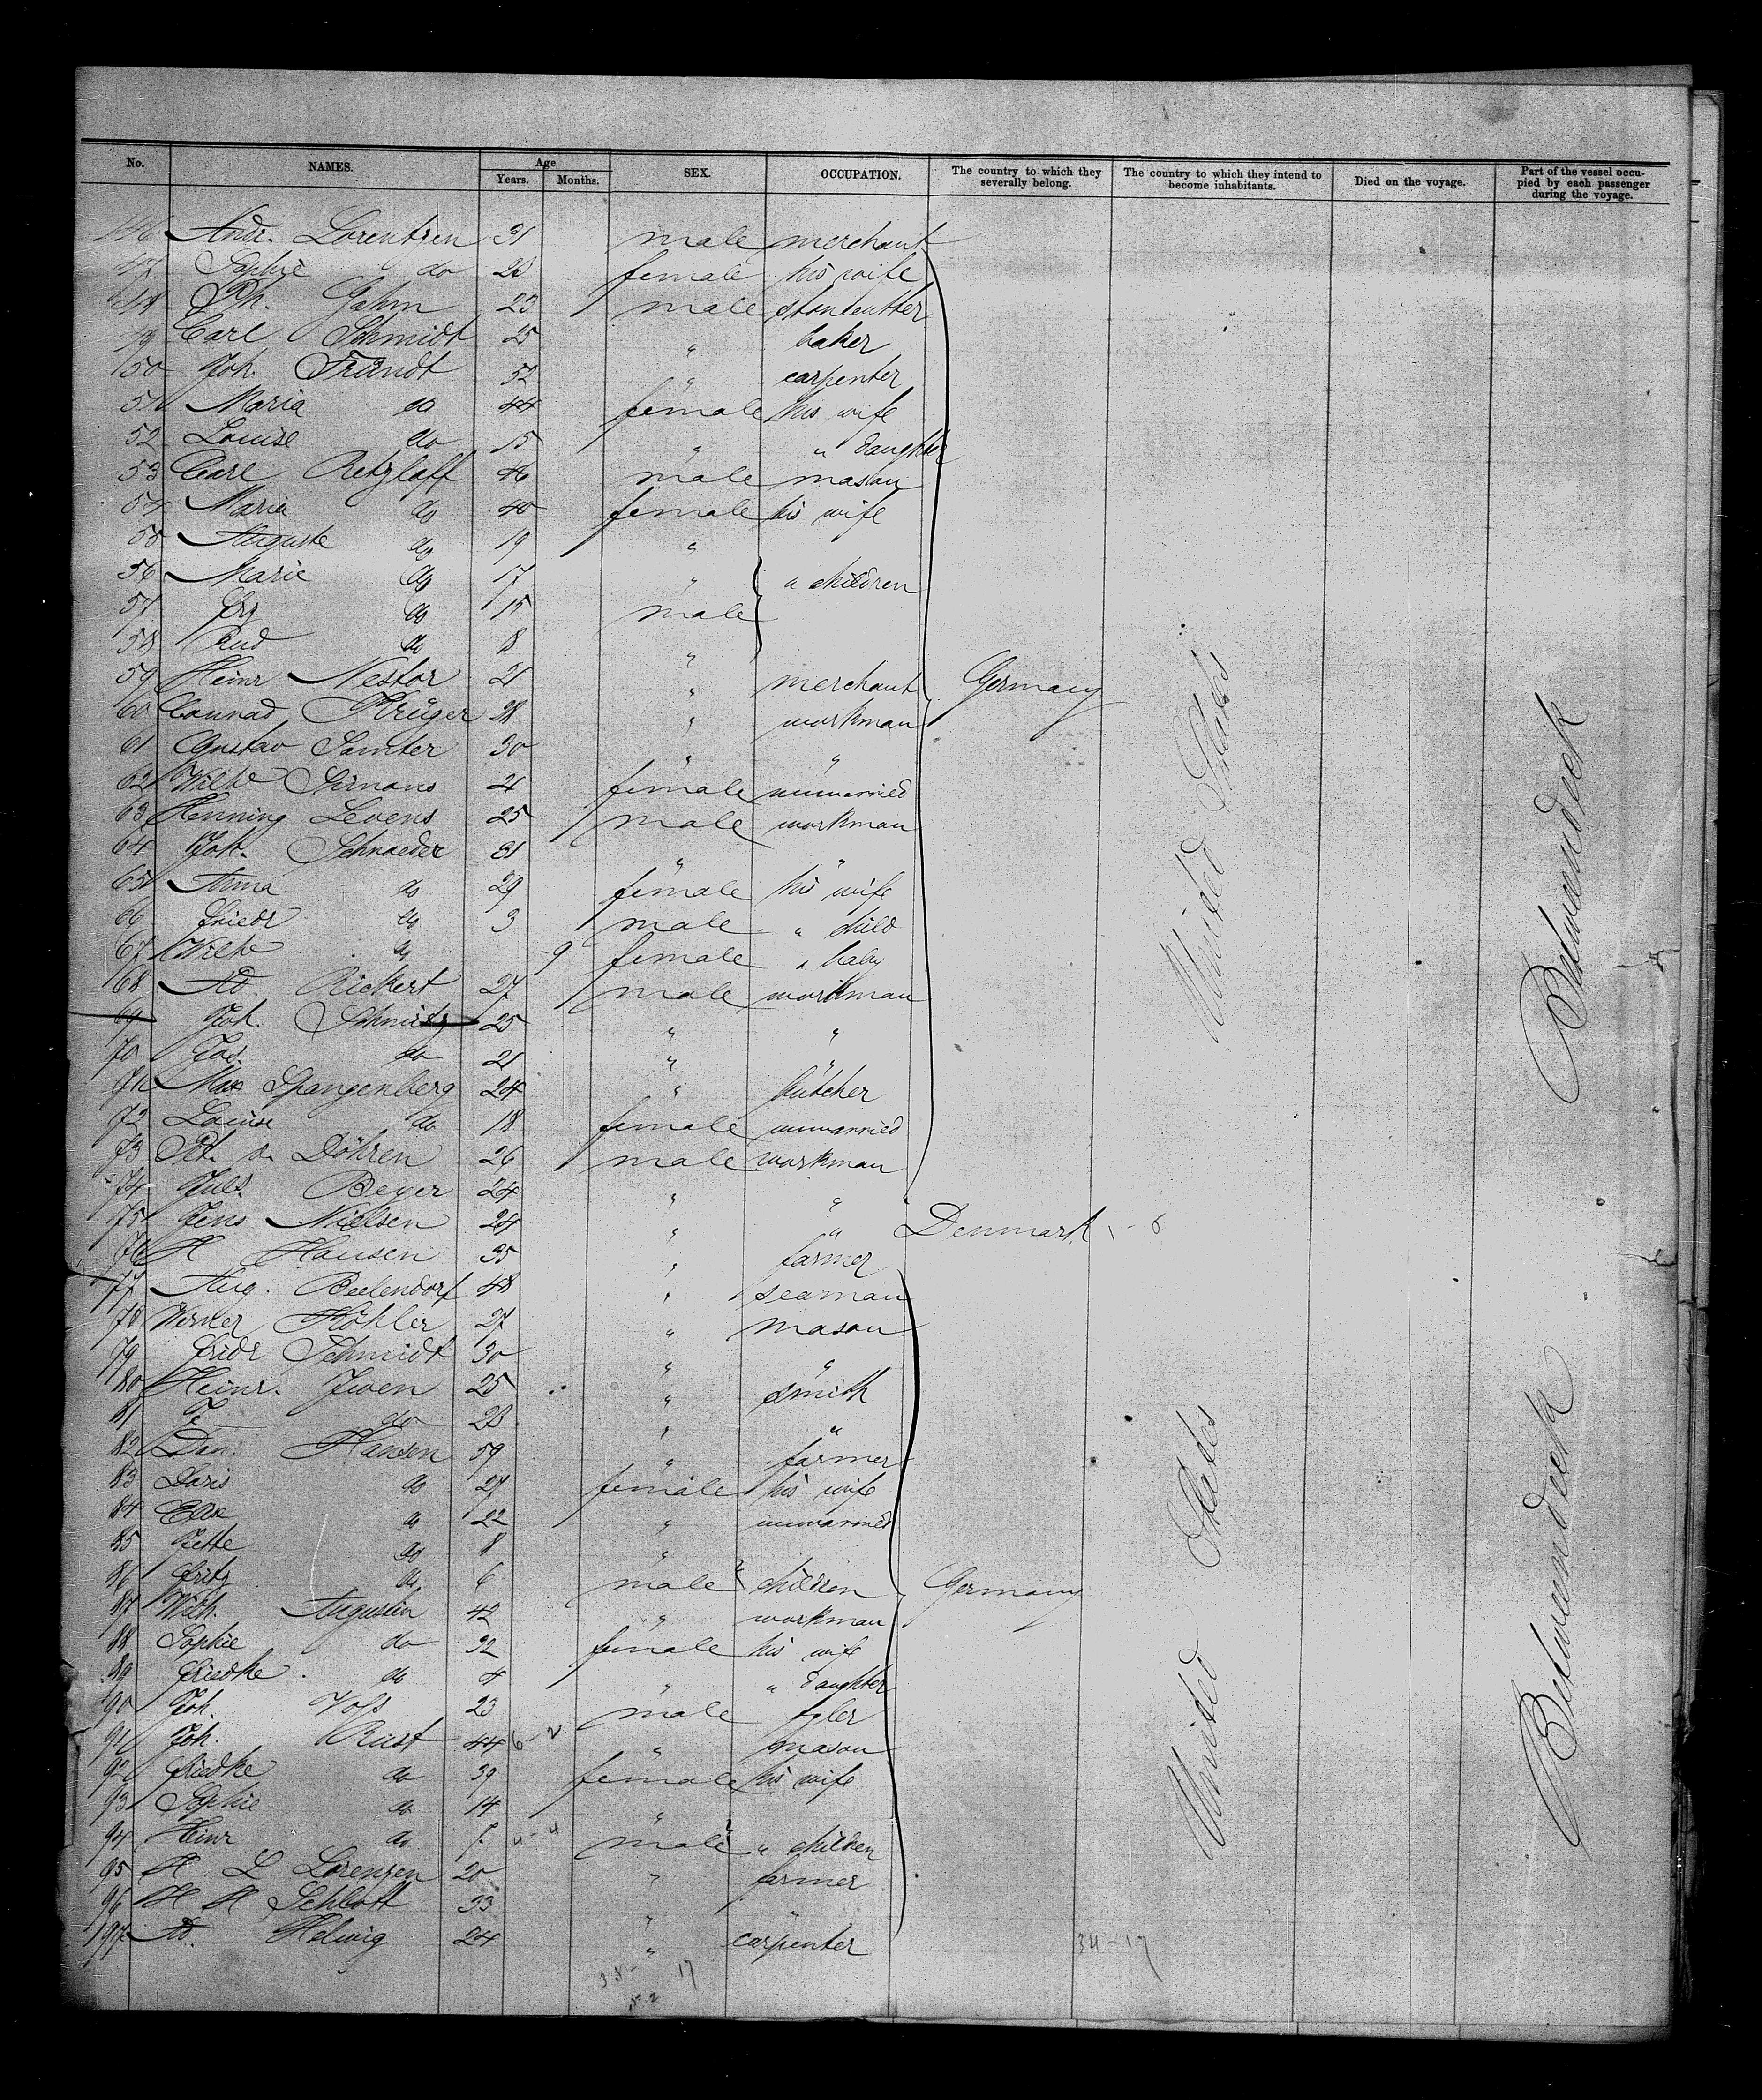 No. NAMES. Age Years. Months. SEX. OCCUPATION. The country to which they severally belong. The country to which they intend to become inhabitants. Died on the voyage. Part of the vessel occupied by each passenger during the voyage.
146 Andr. Lorentzen 31 male merchant
47 Sophie do 23 female his wife
48 Ph. Gahm 23 male stonecutter
49 Carl Schmidt 25 " baker
150 Joh. Fründt 52 " carpenter
51 Maria do 44 female his wife
52 Louise do 15 " " daughter
53 Carl Retzlaff 46 male mason
54 Maria do 40 female his wife
55 Auguste do 19 "
56 Marie do 17 " " children
57 Frz do 15 male
58 Rud do 8 "
59 Heinr Nestor 21 " merchant Germany
60 Conrad Krüger 28 " workman
61 Gustav Samter 30 " "
62 Wilhe Simons 21 female unmarried
63 Henning Levens 25 male workman
64 Joh. Schroeder 31 " "
65 Anna do 29 female his wife
66 Friedr do 3 male " child
67 Wilhe do 9 female " baby
68 Ad. Rickert 27 male workman
69 Joh. Schmitz 25 " "
70 Jos. do 21 " "
71 Max Spangenberg 24 " butcher
72 Louise do 18 female unmarried
73 Pet. v. Döhren 26 male workman
74 Juls. Beyer 24 " "
75 Jens Nielsen 24 " " Denmark
76 H Hansen 35 " farmer
77 Aug. Beelendorf 48 " seaman
78 Werner Köhler 27 " mason
79 Fridr Schmidt 30 " "
80 Heinr. Jwen 25 " smith
81 F do 23 " "
82 Dan. Hansen 59 " farmer
83 Doris do 27 female his wife
84 Elise do 22 " unmarried
85 Jette do 8 "
86 Fritz do 6 male children Germany
87 Wilh. Augustin 42 " workman
88 Sophie do 32 female his wife
89 Friedke do 4 " " daughter
90 Joh. Voss 23 male tyler
91 Joh. Rust 44 6-2 " mason
92 Friedke do 39 female his wife
93 Sophie do 14 "
94 Heinr do 7 4-4 male " children
95 H L Lorenzen 20 " farmer
96 H H Schlott 33 " "
197 Ad. Helwig 24 " carpenter
34-17
17
United States
United States
Betweendeck
Betweendeck